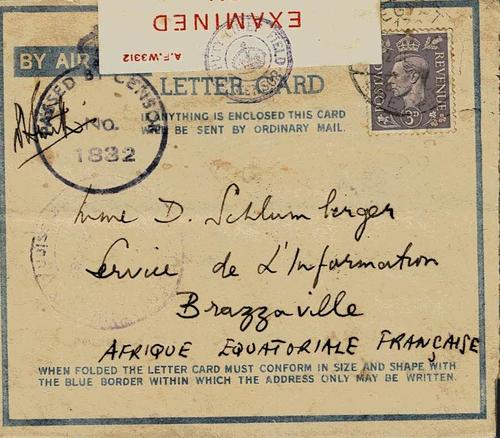 EXAMINED
A.F.W3312
BY AIR
LETTER CARD
PASSED BY CENSOR
NO.
1832
POSTAGE REVENUE
3D
IF ANYTHING IS ENCLOSED THIS CARD
WILL BE SENT BY ORDINARY MAIL.
Mme D. Schlumberger
Service de L'Information
Brazzaville
AFRIQUE EQUATORIALE FRANÇAISE
WHEN FOLDED THE LETTER CARD MUST CONFORM IN SIZE AND SHAPE WITH
THE BLUE BORDER WITHIN WHICH THE ADDRESS ONLY MAY BE WRITTEN.